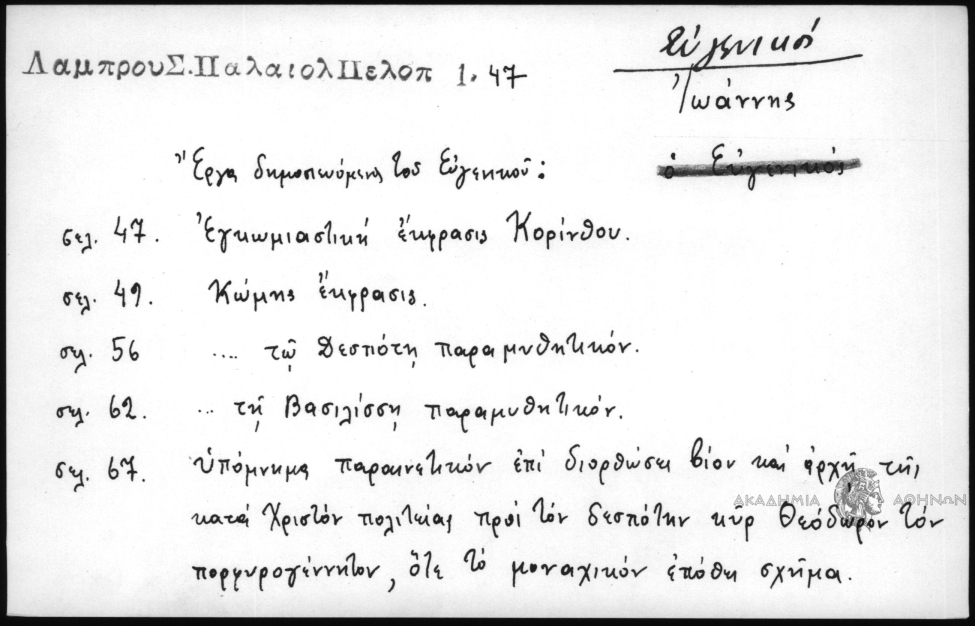 Εὐγενικός
ΛαμπρουΣ.ΠαλαιολΠελοπ 1. 47
Ἰωάννης
ὁ Εὐγενικός
Ἔργα δημοσιευόμενα τοῦ Εὐγενικοῦ:
σελ. 47. Ἐγκωμιαστική ἔκφρασις Κορίνθου.
σελ. 49. Κώμης ἔκφρασις.
σελ. 56 .... τῷ Δεσπότῃ παραμυθητικόν.
σελ. 62. ... τῇ Βασιλίσσῃ παραμυθητικόν.
σελ. 67. Ὑπόμνημα παραινετικόν ἐπί διορθώσει βίου καί ἀρχῇ τῆς
κατά Χριστόν πολιτείας πρός τόν δεσπότην κῦρ Θεόδωρον τόν
πορφυρογέννητον, ὅτε τό μοναχικόν ἐπόθει σχῆμα.
ΑΚΑΔΗΜΙΑ ΑΘΗΝΩΝ